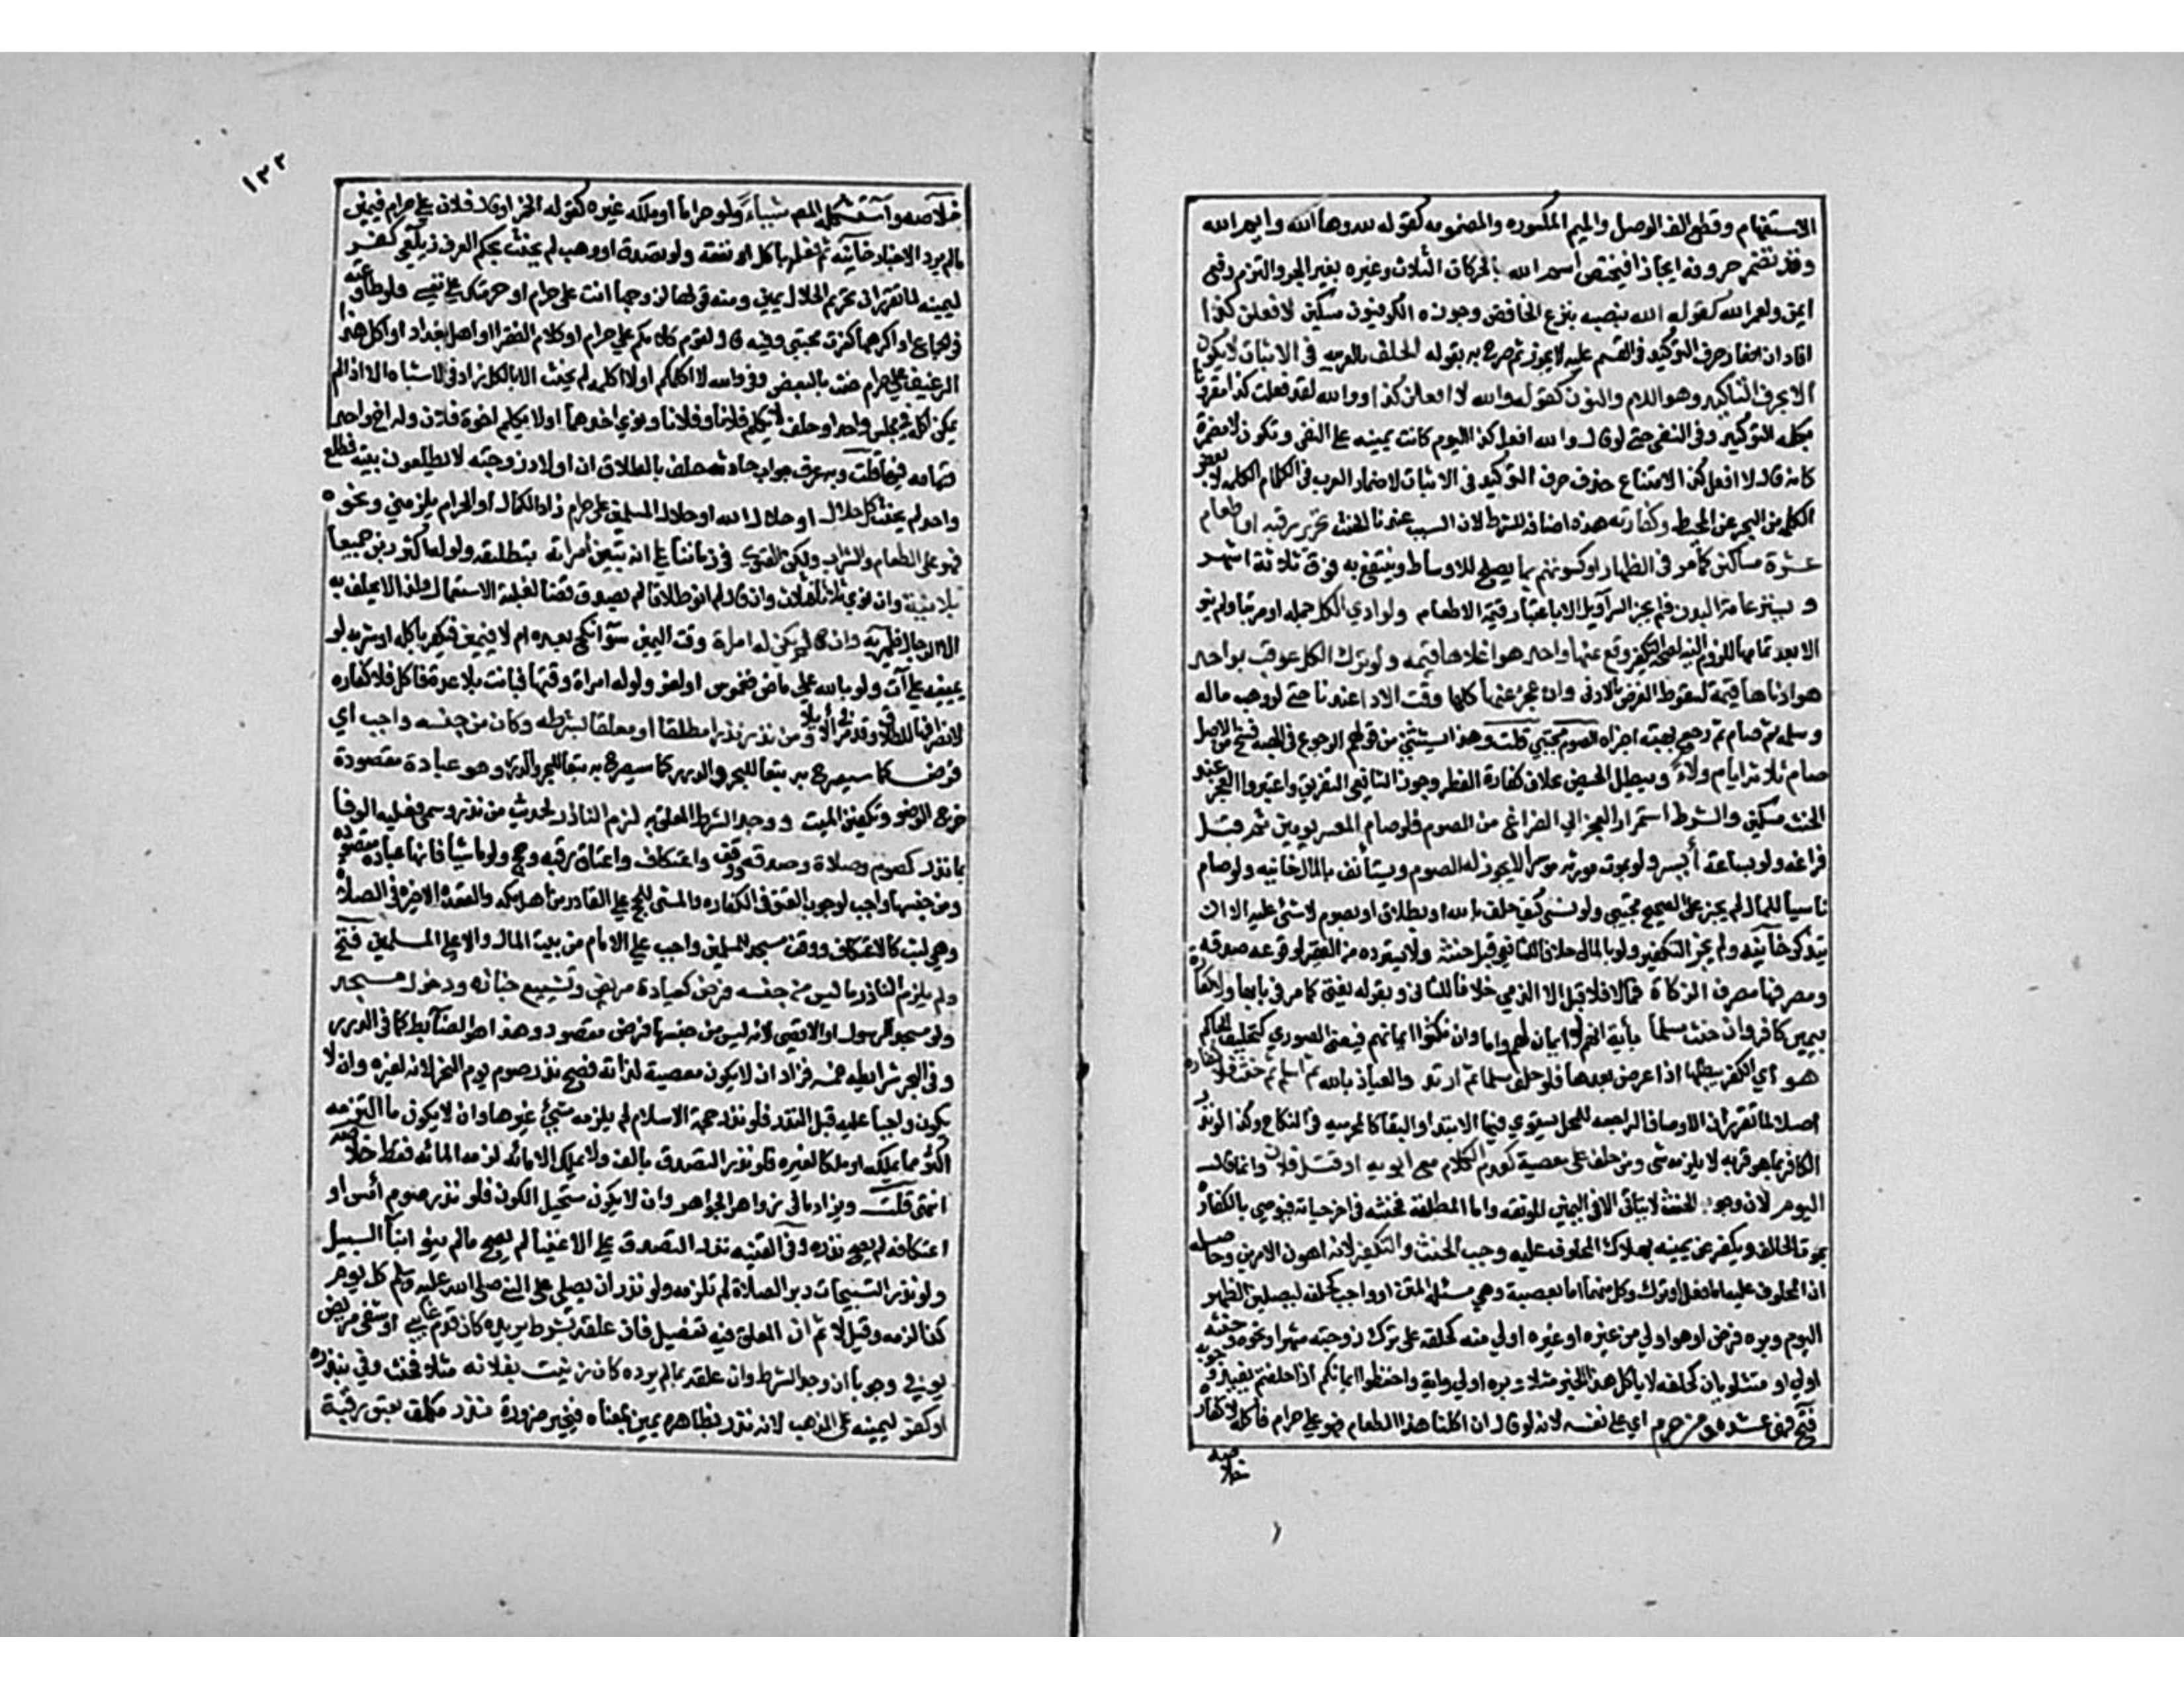 الاستفهام وقطع الف الوصل والميم المكسوره والمضمومه كقوله لله وها الله وايم الله
وقد تضمر حروفه ايجازا فيختص اسم الله بالحركات الثلاث وغيره بغير الجر والتزم رفع
ايمن ولعمر الله كقوله الله بنصبه بنزع الخافض وجوزه الكوفيون مسكين لافعلن كذا
افاد ان اضمار حرف التوكيد في المقسم عليه لا يجوز ثم صرح به بقوله الحلف بالعربيه في الاثبات لا يكون
الا بحرف التاكيد وهو اللام والنون كقوله والله لافعلن كذا ووالله لقد فعلت كذا مقرونا
بكلمه التوكيد وفي النفي حتى لو قال والله افعل كذا اليوم كانت يمينه على النفي وتكون لا مضمرة
كانه قال لا افعل كذا لامتناع حذف حرف التوكيد في الاثبات لاضمار العرب في الكلام الكلمه لا بعض
الكلمه من البحر عن المحيط وكفارته هذه اضافه للشرط لان السبب عندنا الحنث تحرير رقبه او اطعام
عشرة مساكين كما مر في الظهار او كسوتهم بما يصلح للاوساط وينتفع به فوق ثلاثة اشهر
ويستر عامة البدن فلم يجز السراويل الا باعتبار قيمة الاطعام ولو ادي الكل جمله او مرتبا ولم ينو
الا بعد تمامها للزوم النيه لصحة التكفير وقع عنها واحد هو اغلاها قيمه ولو ترك الكل عوقب بواحد
هو ادناها قيمة لسقوط الفرض بالادنى وان عجز عنها كلها وقت الادا عندنا حتى لو وهب ماله
وسلمه ثم صام ثم رجع بهبته اجزاه الصوم مجتبي قلت وهذا يستثني من قولهم الرجوع في الهبه فسخ من الاصل
صام ثلاثه ايام ولاء ويبطل بالحيض بخلاف كفارة الفطر وجوز الشافعي التفريق واعتبروا العجز عند
الحنث مسكين والشرط استمرار العجز الي الفراغ من الصوم فلو صام المعسر يومين ثم قبل
فراغه ولو بساعة أيسر ولو بموت مورثه موسرا لا يجوز له الصوم ويستأنف بالمال خانيه ولو صام
ناسيا للمال لم يجز على الصحيح مجتبي ولو نسي كيف حلف بالله او بطلاق او بصوم لا شئ عليه الا ان
يتذكر خانيه ولم يجز التكفير ولو بالمال خلافا للشافعي قبل حنث ولا يسترده من الفقير لوقوعه صدقه
ومصرفها مصرف الزكاة فما لا فلا قبل الا الذمي خلافا للثاني وبقوله يفتى كما مر في بابها ولا كفارة
بيمين كافر وان حنث مسلما بأية انهم لا ايمان لهم واما وان نكثوا ايمانهم فيعني الصوري كتحليف الحاكم
هو اي الكفر يبطلها اذا عرض بعدها فلو حلف مسلما ثم ارتد والعياذ بالله ثم اسلم ثم حنث فلا كفارة
اصلا لما تقرر ان الاوصاف الراجعه للمحل يستوي فيها الابتدا والبقا كالمحرميه في النكاح وكذا لو نذر
الكافر بما هو قربه لا يلزمه شئ ومن حلف على معصية كعدم الكلام مع ابويه او قتل فلان وانما قال
اليوم لان وجوب الحنث لا يتأتى الا في اليمين المؤقته واما المطلقة فحنثه في اخر حياته فيوصي بالكفارة
بموت الحالف ويكفر عن يمينه بهلاك المحلوف عليه وجب الحنث والتكفير لانه اهون الامرين وحاصله
ان المحلوف عليه اما فعل او ترك وكل منهما اما معصية وهي مسئلة المتن او واجب كحلفه ليصلين الظهر
اليوم وبره فرض او هو اولي من غيره او غيره اولي منه كحلفه على ترك زوجته شهرا ونحوه وحنثه
اولي او مستويان كحلفه لا يأكل هذا الخبز مثلا وبره اولي واية واحفظوا ايمانكم اذا حلفتم يفيد وجوبه
فتح ومن حرم اي على نفسه لانه لو قال ان اكلت هذا الطعام فهو علي حرام فأكله لا كفارة
خلاصه
١٢٢
خلاصه واستشكله المص شيئا ولو حراما او ملك غيره كقوله الخمر او مال فلان علي حرام فيمين
مالم يرد الاخبار خانيه ثم فعله بأكل او نفقه ولو تصدق او وهب لم يحنث بحكم العرف زيلعي كفر
ليمينه لما تقرر ان تحريم الحلال يمين ومنه قولها لزوجها انت علي حرام او حرمتك على نفسي فلو طاوعته
في الجماع او اكرهها كفرت مجتبي وفيه قال لقوم كلامكم علي حرام او كلام الفقرا او اهل بغداد او اكل هذا
الرغيف علي حرام حنث بالبعض وفي والله لا اكلمكم او لا اكله لم يحنث الا بالكل زاد في الاشباه الا اذا لم
يمكن اكله في مجلس واحد او حلف لا يكلم فلانا وفلانا ونوي احدهما او لا يكلم اخوة فلان وله اخ واحد
وتمامه فيها قلت وبه عرف جواب حادثه حلف بالطلاق ان اولاد زوجته لا يطلعون بيته فطلع
واحد لم يحنث كل حلال او حلال الله او حلال المسلمين علي حرام زاد الكمال او الحرام يلزمني ونحوه
فهو على الطعام والشراب ولكن الفتوى في زماننا على انه تبين امراته بتطليقه ولو له اكثر بن جميعا
بلا نيه وان نوي ثلاثا فثلاث وان قال لم انو طلاقا لم يصدق قضا لغلبة الاستعمال ولذا لا يحلف به
الا الرجال ظهيريه وان لم يكن له امرأة وقت اليمين سوا نكح بعده ام لا فيمين فيكفر بأكله او شربه لو
يمينه على آت ولو بالله على ماض فغموس او لغو ولو له امراة وقتها فبانت بلا عدة فأكل فلا كفاره
لانصرافها للطلاق وقد مر في الايلا ومن نذر نذرا مطلقا او معلقا بشرطه وكان من جنسه واجب اي
فرض كما سيصرح به تبعا للبحر والدرر كما سيصرح به تبعا للبحر والدرر وهو عبادة مقصودة
خرج الوضو وتكفين الميت ووجد الشرط المعلق به لزم الناذر لحديث من نذر وسمى فعليه الوفا
بما نذر كصوم وصلاة وصدقه ووقف واعتكاف واعتاق رقبه وحج ولو ماشيا فانها عباده مقصوده
ومن جنسها واجب لوجوب العتق في الكفاره والمشي للحج على القادر من اهل مكه والقعده الاخيره في الصلاة
وهي لبث كالاعتكاف ووقف مسجد للمسلمين واجب على الامام من بيت المال والا على المسلمين فتح
ولم يلزم الناذر ما ليس من جنسه فرض كعيادة مريض وتشييع جنازه ودخول مسجد
ولو مسجد الرسول او الاقصى لانه ليس من جنسها فرض مقصود وهذا هو الضابط كما في الدرر
وفي البحر شرايطه خمسه فزاد ان لا يكون معصية لذاته فصح نذر صوم يوم النحر لانه لغيره وان لا
يكون واجبا عليه قبل النذر فلو نذر حجة الاسلام لم يلزمه شئ غيرها وان لا يكون ما التزمه
اكثر مما يملكه او ملكا لغيره فلو نذر التصدق بالف ولا يملك الا مائه لزمه المائه فقط خلاصه
انتهى قلت ويزاد ما في زواهر الجواهر وان لا يكون مستحيل الكون فلو نذر صوم أمس او
اعتكافه لم يصح نذره وفي القنيه نذر التصدق على الاغنيا لم يصح مالم ينو ابنا السبيل
ولو نذر التسبيحات دبر الصلاة لم تلزمه ولو نذر ان يصلي على النبي صلى الله عليه وسلم كل يوم
كذا لزمه وقيل لا ثم ان المعلق فيه تفصيل فان علقه بشرط يريده كان قدم غايبي او شفي مريضي
يوفي وجوبا ان وجد الشرط وان علقه بما لم يرده كان زنيت بفلانه مثلا فحنث وفي بنذره
او كفر ليمينه على المذهب لانه نذر بظاهره يمين بمعناه فيخير ضرورة نذر مكلف بعتق رقبة